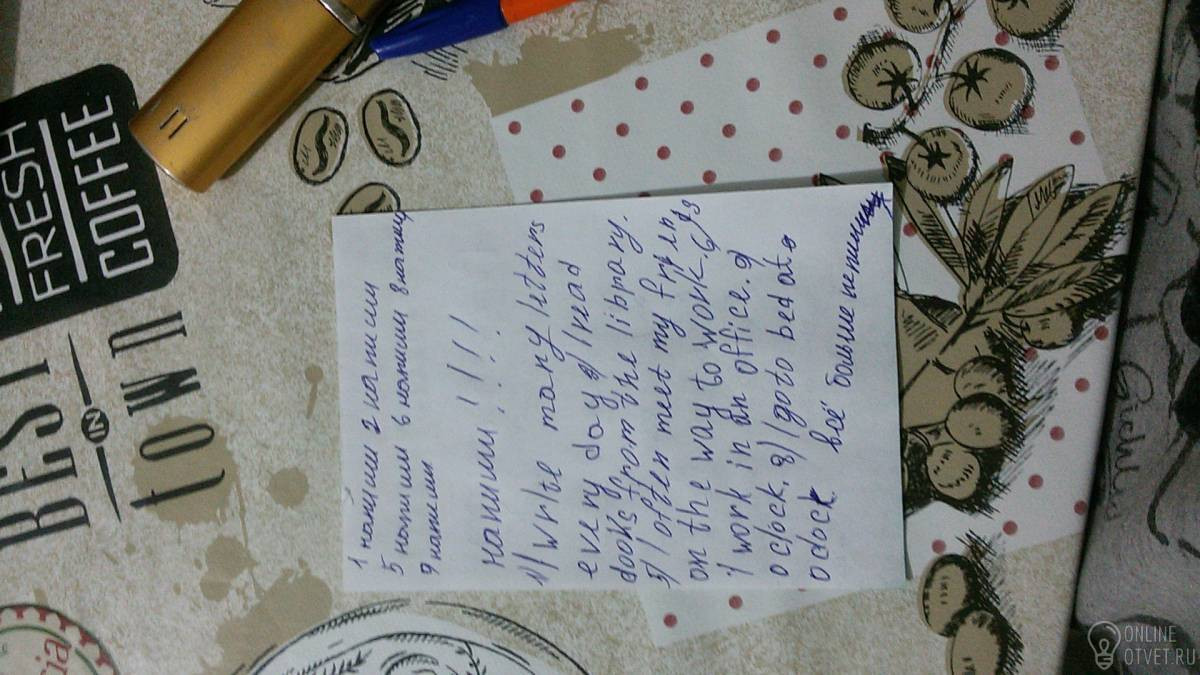 1 напиши 2 напиши
5 напиши 6 напиши 8 напиши
9 напиши
напиши !!!!
1) I write many letters
every day 2) I read
books from the library.
5) I often meet my frien
ds
on the way to work. 6)
I work in an office. 8)
o clock. 9) I go to bed at
o clock. всё больше не пиши
FRESH
COFFEE
BEST
IN
TOWN
ONLINE
OTVET.RU